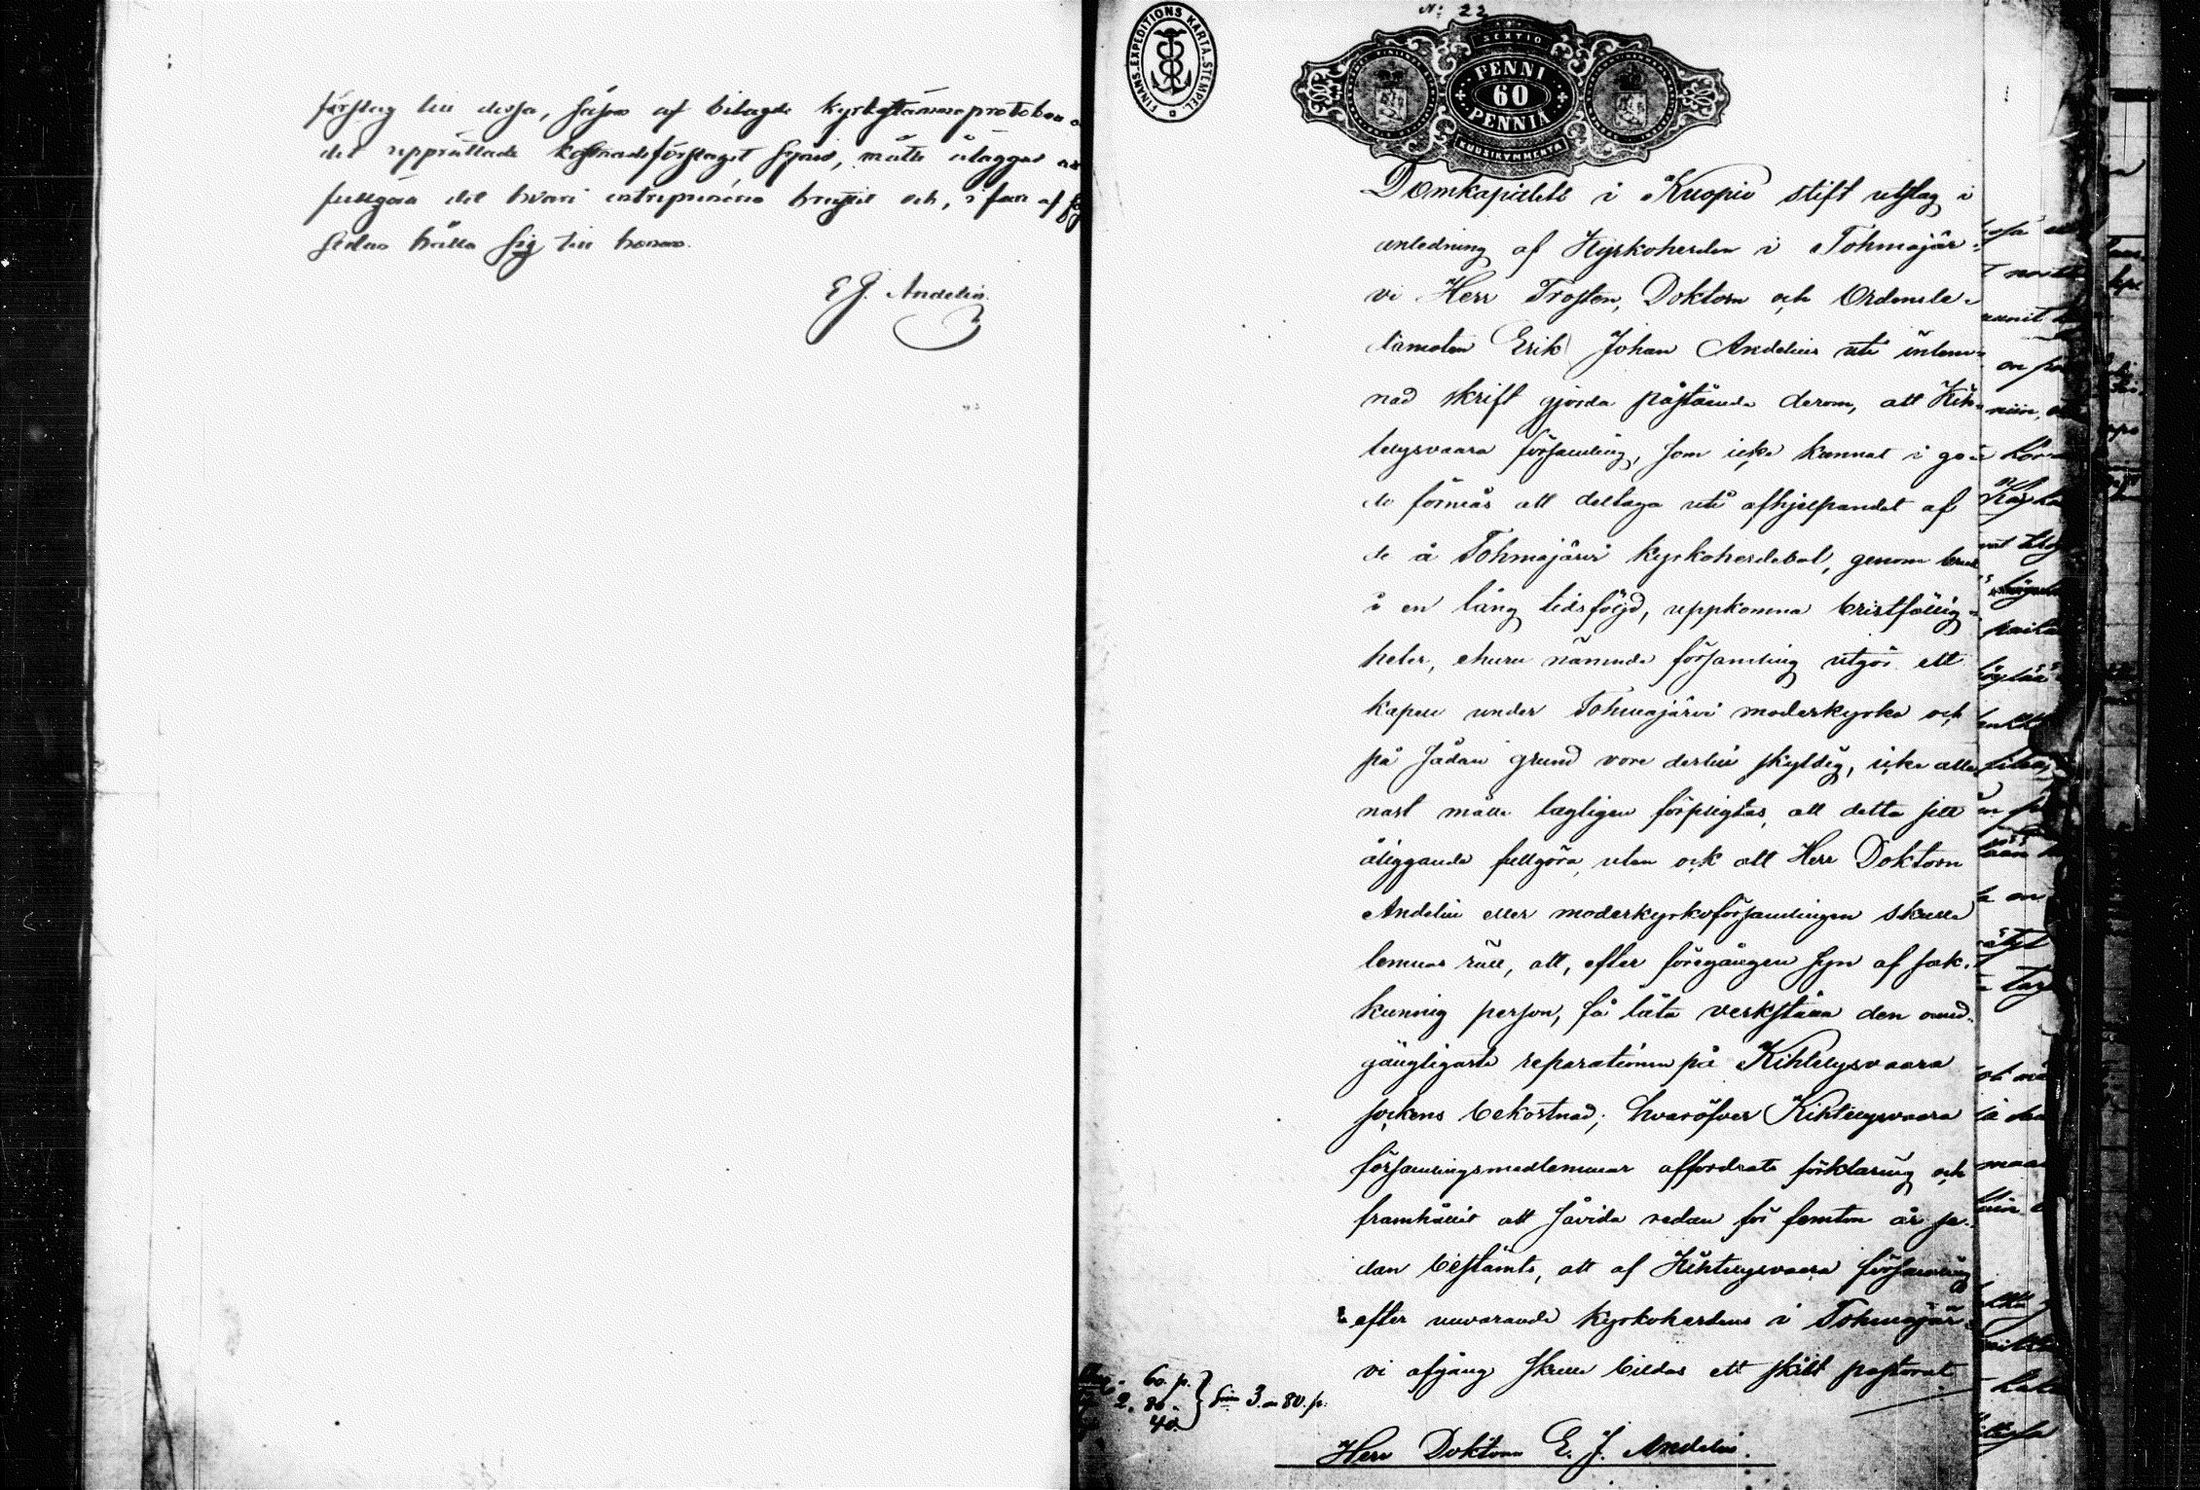 förslag till dessa, såsom af bilagde kyrkostämmoprotokoll
det upprättade kostnadsförslaget synes, måtte åläggas
fullgöra det hvari entreprenören brustit och, i fall af
sedan hålla sig till honom.
E J. Andelin.
N: 22
FINANS-EXPEDITIONS KARTA. STEMPEL.
SEXTIO
PENNI
60
PENNIÄ
KUUSIKYMMENTÄ
Domkapitlets i Kuopio stift utslag i
anledning af Kyrkoherden i Tohmajär-
vi Herr Prosten, Doktorn och Ordensle-
damoten Erik Johan Andelins uti inlem-
nad skrift gjorda påstående derom, att Kih-
telysvaara församling, som icke kunnat i go-
do förmås att deltaga uti afhjelpandet af
de å Tohmajärvi kyrkoherdebol, genom
i en lång tidsföljd, uppkomna bristfällig-
heter, ehuru nämnde församling utgör ett
kapell under Tohmajärvi moderkyrka och
på sådan grund vore dertill skyldig, icke alle-
nast måtte lagligen förpligtas, att detta sitt
åliggande fullgöra, utan ock att Herr Doktorn
Andelin eller moderkyrkoförsamlingen skulle
lemnas rätt, att, efter föregången syn af sak-
kunnig person, få låta verkställa den ound-
gängligaste reparationen på Kihtelysvaara
sockens bekostnad; hvaröfver Kihtelysvaara
församlingsmedlemmar affordrats förklaring och
framhållit att såvida redan för femton år se-
dan bestämts, att af Kihtelysvaara församling
efter nuvarande kyrkoherdens i Tohmajär-
vi afgång skulle bildas ett skildt pastorat
60. p.
2. 80.
40.
3. 80. p.
Herr Doktorn E. J. Andelin.